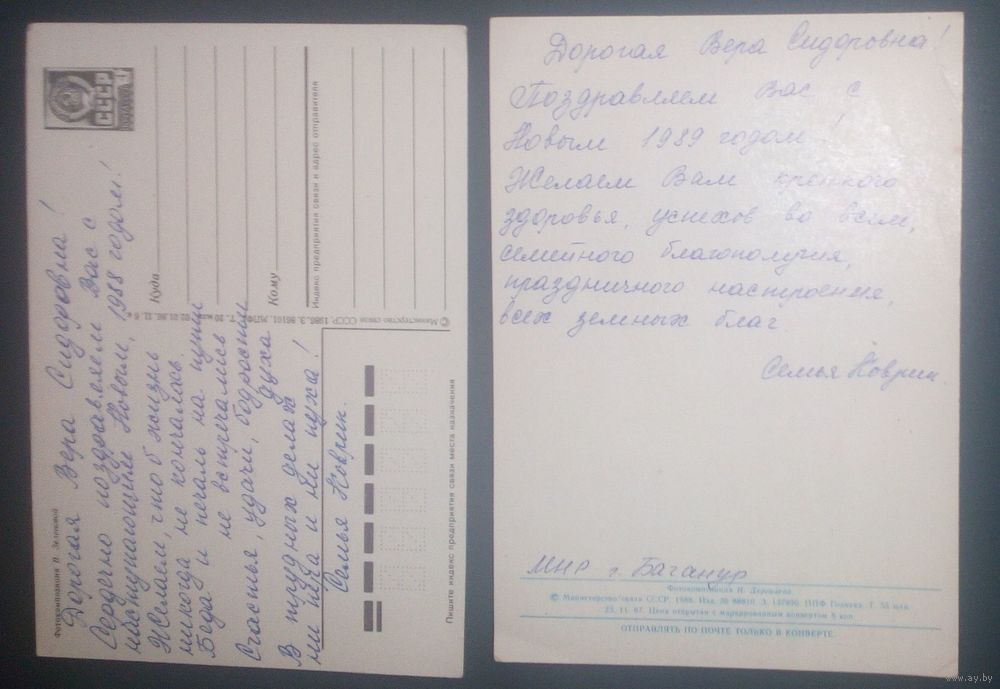 Фотокомпозиция В. Зеленовой
СССР
Дорогая Вера Сидоровна!
Сердечно поздравляем Вас с
наступающим Новым, 1988 годом!
Желаем, чтоб жизнь
никогда не кончалась
Беда и печаль на пути
не встречались
Счастья, удачи, бодрости
духа
В трудных делах
ни пера и ни пуха!
Семья Коврик.
Куда
Кому
Индекс предприятия связи и адрес отправителя
© Министерство связи СССР, 1986. З. 86101. МПФГ.
Пишите индекс предприятия связи места назначения
Дорогая Вера Сидоровна!
Поздравляем Вас с
Новым 1989 годом!
Желаем Вам крепкого
здоровья, успехов во всем,
семейного благополучия,
праздничного настроения,
всех земных благ.
Семья Коврик.
МНР г. Баганур
Фотокомпозиция И. Дергилева
© Министерство связи СССР. 1988. Изд. № 88810. З. 157800. ППФ Гознака. Т. 55 млн.
23. 11. 87. Цена открытки с маркированным конвертом 8 коп.
ОТПРАВЛЯТЬ ПО ПОЧТЕ ТОЛЬКО В КОНВЕРТЕ.
www.ay.by